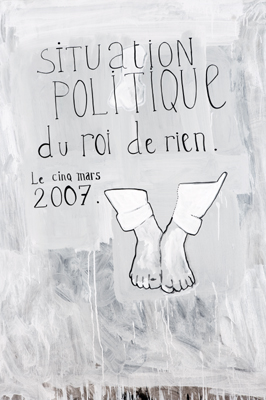 SITUATION
POLITIQUE
du roi de rien.
Le cinq mars
2007.